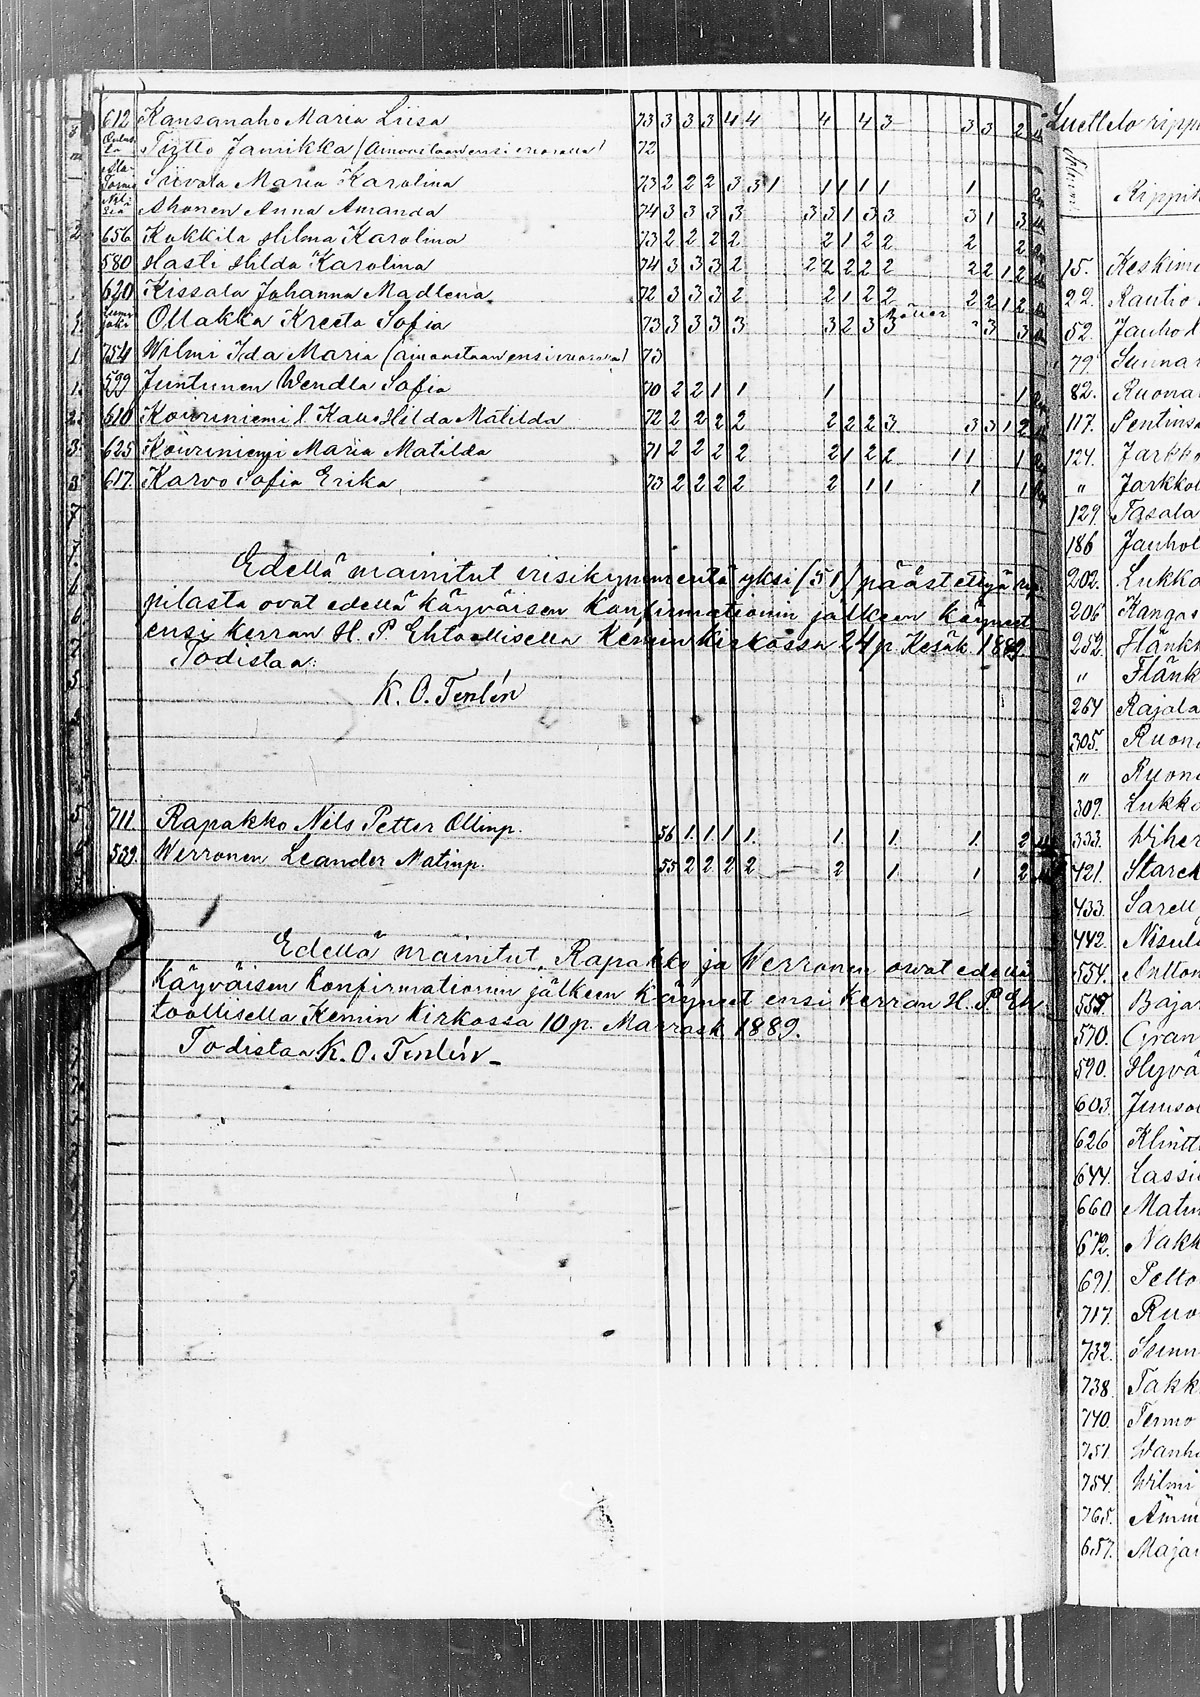 612 Kansanaho Maria Liisa 73 3 3 3 4 4 4 4 3 3 3 2
Tirtto Jannikka (Annostaan ensi vuorolla) 72
Siivola Maria Karolina 73 2 2 2 3 3 1 1 1 1 1 1
Ahonen Anna Amanda 74 3 3 3 3 3 3 1 3 3 3 1 3
656 Kukkila Hilma Karolina 73 2 2 2 2 2 1 2 2 2 2
580 Hasti Hilda Karolina 74 3 3 3 2 2 2 2 2 2 2 2 1 2
620 Kissala Johanna Madlena 72 3 3 3 2 2 1 2 2 2 2 1 2
Ollakka Kreeta Sofia 73 3 3 3 3 3 2 3 3 3 3
754 Wilmi Ida Maria 73
599 Juntunen Wendla Sofia 70 2 2 1 1 1 1
610 Kouriniemi l. Kallo Hilda Matilda 72 2 2 2 2 2 2 2 3 3 3 1 2
625 Kouriniemi Maria Matilda 71 2 2 2 2 2 1 2 2 1 1 1
617. Karvo Sofia Erika 73 2 2 2 2 2 1 1 1 1
Edellä mainitut viisikymmentä yksi (51) päästettyä rip
pilasta ovat edellä käyväisen Konfirmationin jälkeen käyneet
ensi kerran H. P. Ehtoollisella Kemin Kirkossa 24 p. Kesäk. 1889.
Todistaa:
K. O. Tenlén
711. Rapakko Nils Petter Ollinp. 56 1. 1. 1. 1. 1. 1. 1. 2
539. Werronen Leander Matinp. 55 2 2 2 2 — 2 1. 1 2
Edellä mainitut, Rapakko ja Werronen ovat edellä
käyväisen Konfirmationin jälkeen käyneet ensi kerran H. P. Eh
toollisella Kemin Kirkossa 10 p. Marrask. 1889.
Todistaa K. O. Tenlén
Luettelo rippi
15. Keskimä
22. Rautio
52. Jauhol
79. Sunnar
82. Ruonan
117. Sentinsa
124. Jarkk
" Jarkkol
129. Tasala
186 Jauhol
202. Lukka
206 Kangas
252. Flänk
" Flänk
264 Rajala
305. Ruon
" Ruon
309. Lukka
333. Wiher
421. Starck
433. Sarell
442. Nisul
554. Antton
Bajar
570. Gran
590. Hyvä
603. Junso
626 Klint
644. Lassi
660 Matin
672. Nakk
691. Pelto
717. Ruo
732. Sunn
738. Takk
740. Termo
751. Wanh
754. Wilmi
765. Ämm
657. Majar